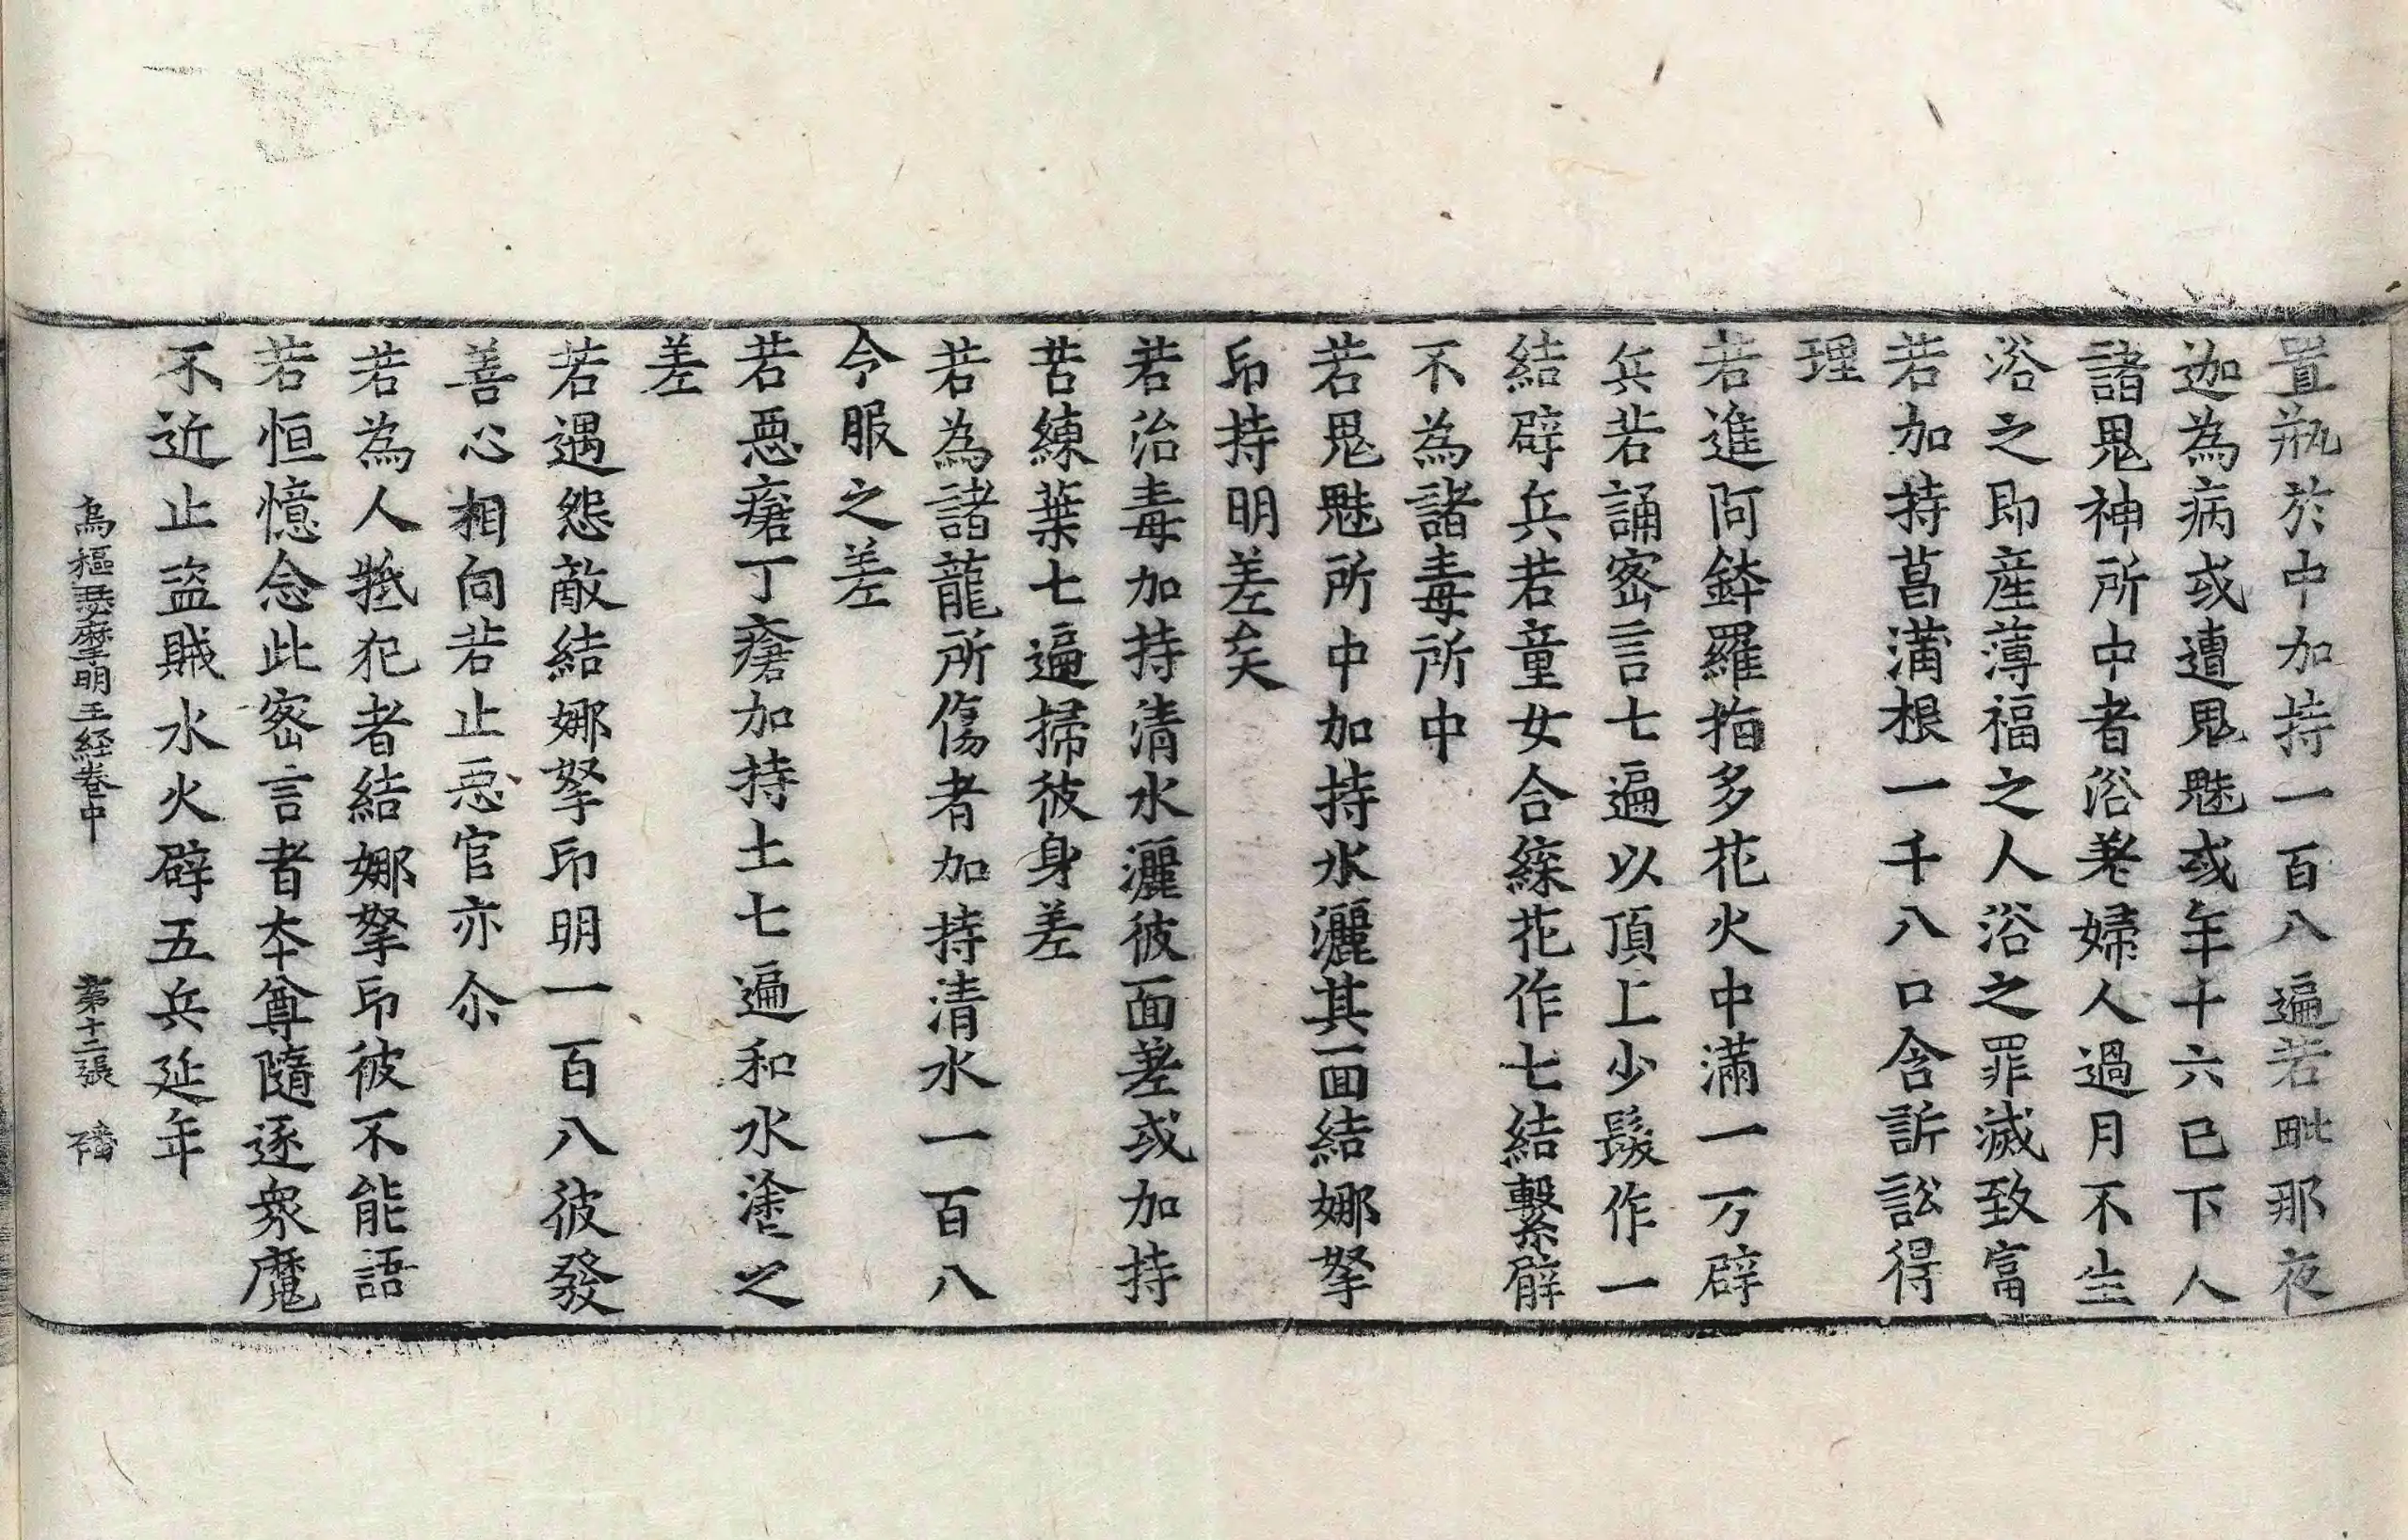 置瓶於中加持一百八遍若毗那夜
迦為病或遭鬼魅或年十六已下人
諸鬼神所中者浴差婦人過月不生
浴之即産薄福之人浴之罪滅致富
若加持菖蒲根一千八口含訴訟得
理
若進阿鉢羅指多花火中滿一万辟
兵若誦密言七遍以頂上少髮作一
結辟兵若童女合綵花作七結繫臂
不為諸毒所中
若鬼魅所中加持水灑其面結娜拏
印持明差矣
若治毒加持清水灑彼面差或加持
苦練葉七遍掃彼身差
若為諸龍所傷者加持清水一百八
令服之差
若惡瘡丁瘡加持土七遍和水塗之
差
若遇怨敵結娜拏印明一百八彼發
善心相向若止惡官亦尒
若為人抵犯者結娜拏印彼不能語
若恒憶念此密言者夲尊隨逐衆魔
不近止盜賊水火辟五兵延年
烏樞瑟摩明王経巻中 第十二張